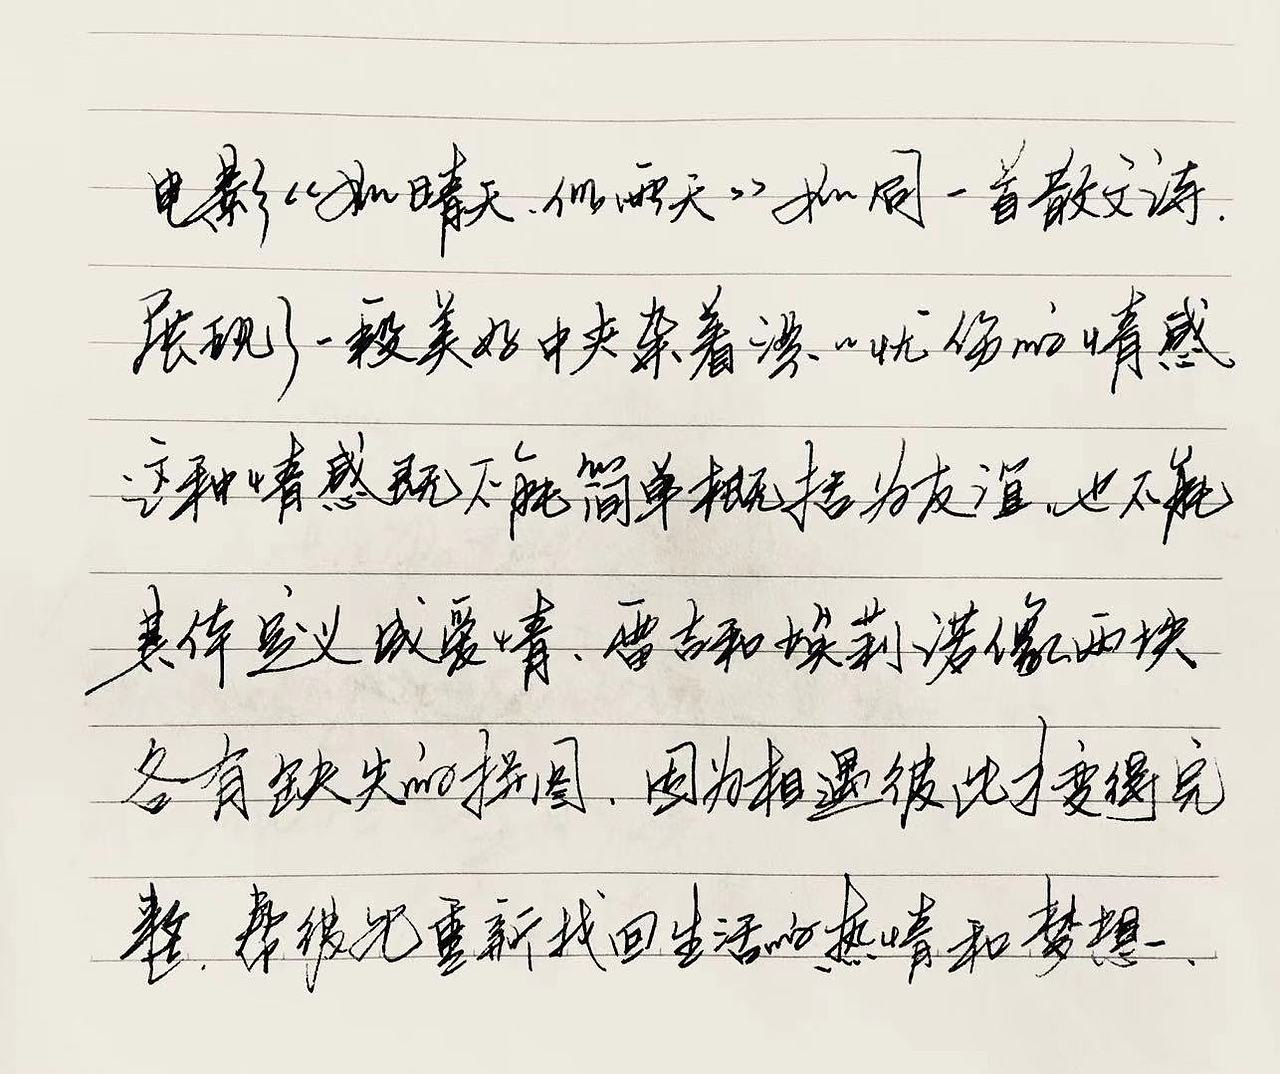 电影《如晴天，似雨天》如同一首散文诗，
展现了一段美好中夹杂着淡淡忧伤的情感
这种情感既不能简单概括为友谊，也不能
具体定义成爱情、雷吉和埃莉诺像两块
各有缺失的拼图，因为相遇彼此才变得完
整，帮彼此重新找回生活的热情和梦想。